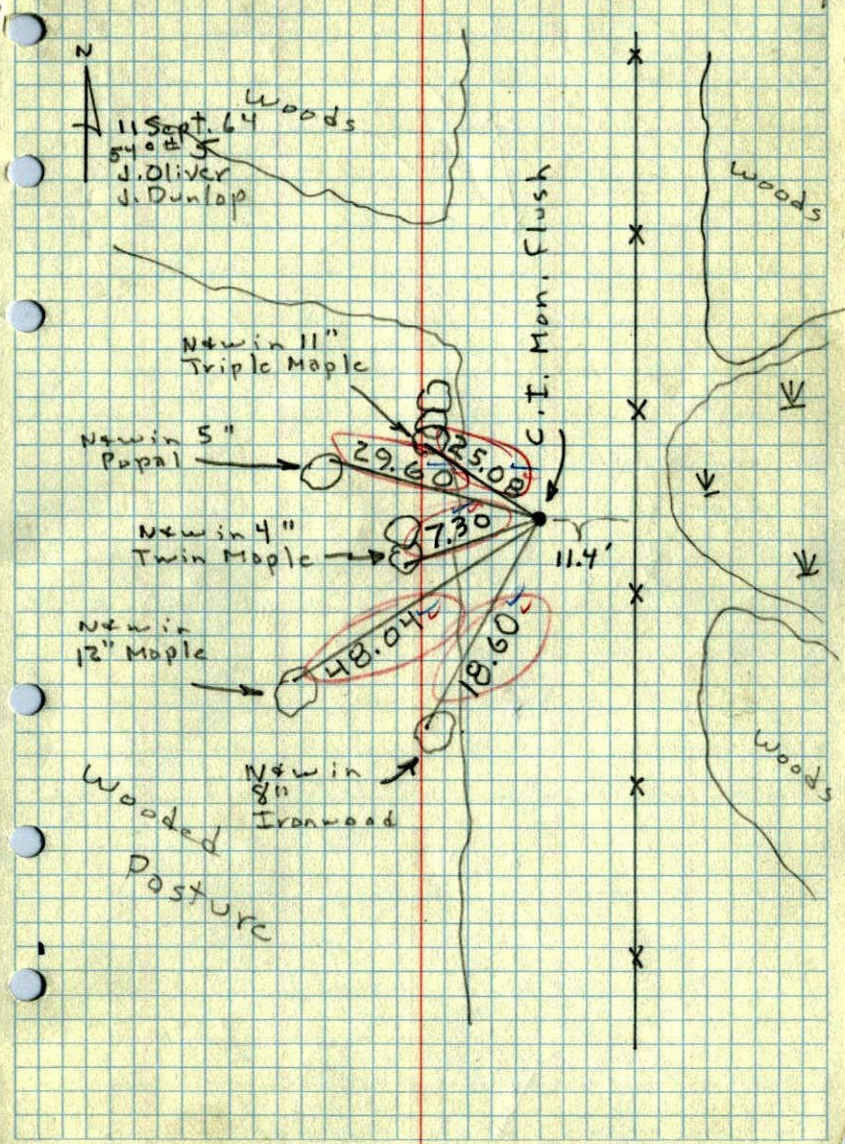 N
Woods
11 Sept. 64
J. Oliver
J. Dunlop
Woods
C.I. Mon. Flush
N&W in 11"
Triple Maple
N&W in 5"
Popal
29.60
25.08
N&W in 4"
Twin Maple
7.30
11.4'
N&W in
12" Maple
48.04
18.60
N&W in
8"
Ironwood
Wooded
Pasture
Woods